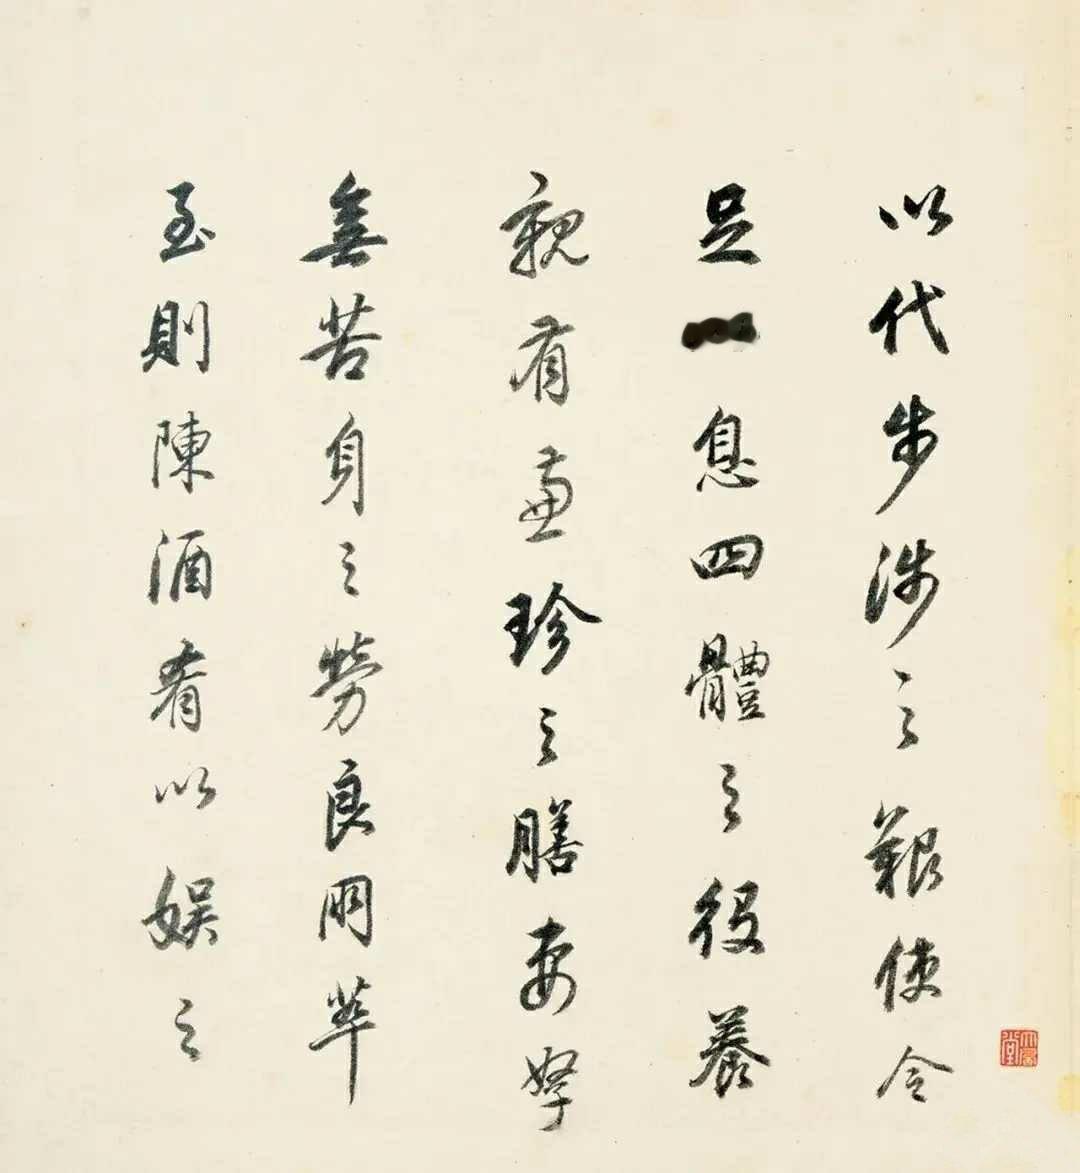 以代步涉之艱使令
足息四體之役養
親有兼珍之膳妻孥
無苦身之勞良朋萃
至則陳酒肴以娛之
大風堂